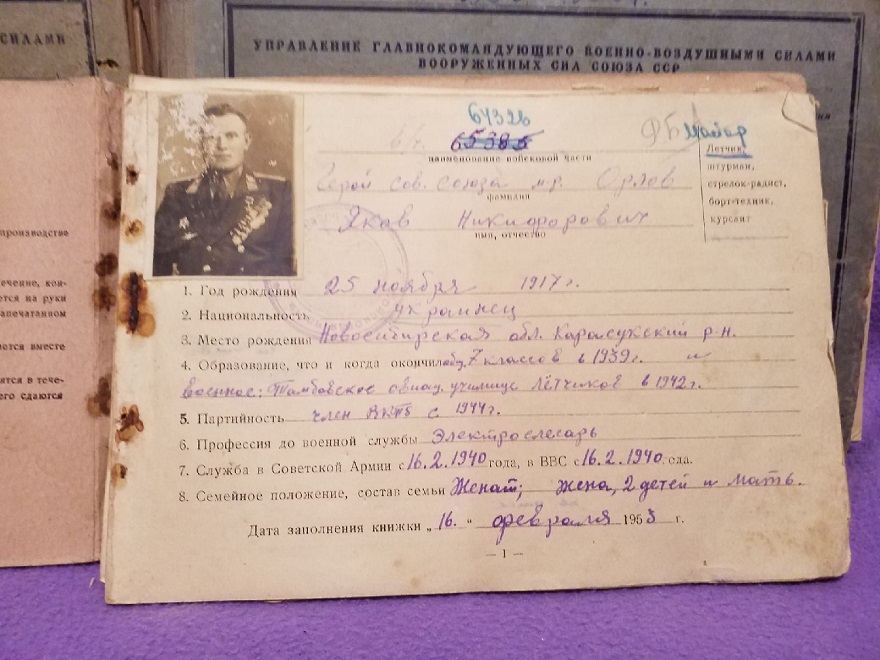 СИЛАМИ
УПРАВЛЕНИЕ ГЛАВНОКОМАНДУЮЩЕГО ВОЕННО-ВОЗДУШНЫМИ СИЛАМИ
ВООРУЖЕННЫХ СИЛ СОЮЗА ССР
производстве
ечение, кон-
ется на руки
апечатанном
ается вместе
ятся в тече-
его сдаются
64326
в/ч 65385
наименование войсковой части
майор
Летчик,
штурман,
стрелок-радист,
борт-техник,
курсант
Герой Сов. Союза м-р Орлов
фамилия
Яков Никифорович
имя, отчество
1. Год рождения 25 ноября 1917 г.
2. Национальность украинец
3. Место рождения Новосибирская обл. Карасукский р-н.
4. Образование, что и когда окончил общ. 7 классов в 1939 г. и
военное: Тамбовское авиац. училище лётчиков в 1942 г.
5. Партийность член ВКПб с 1944 г.
6. Профессия до военной службы Электрослесарь
7. Служба в Советской Армии с 16.2.1940 года, в ВВС с 16.2.1940 года.
8. Семейное положение, состав семьи Женат; жена, 2 детей и мать.
Дата заполнения книжки „16." февраля 1953 г.
— 1 —